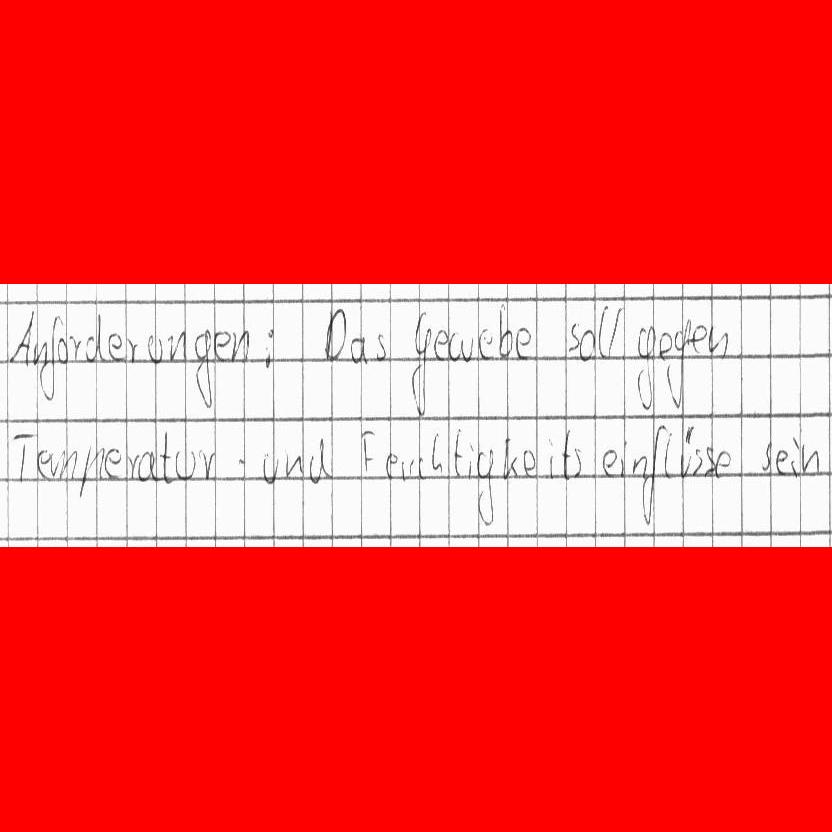 Anforderungen: Das Gewebe soll gegen
Temperatur- und Feuchtigkeitseinflüsse sein